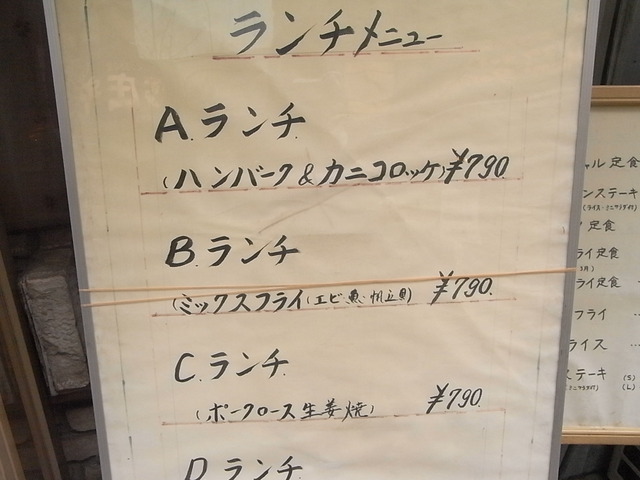 ランチメニュー
A.ランチ
(ハンバーク&カニコロッケ)¥790
B.ランチ
(ミックスフライ(エビ・魚・帆立貝) ¥790.
C.ランチ.
(ポークロース生姜焼) ¥790.
D.ランチ
ャル定食
ンステーキ
定食
ライ定食
ライ定食
フライ
ライス
ステーキ (S)
(L)